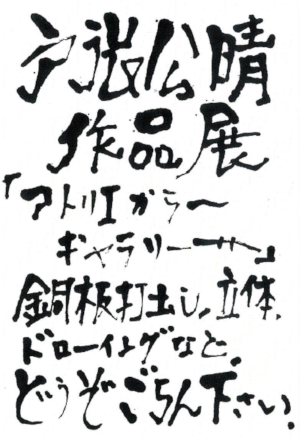 戸張公晴
作品展
「アトリエから〜
ギャラリーサ」
銅板打出し、立体、
ドローイングなど、
どうぞごらん下さい。